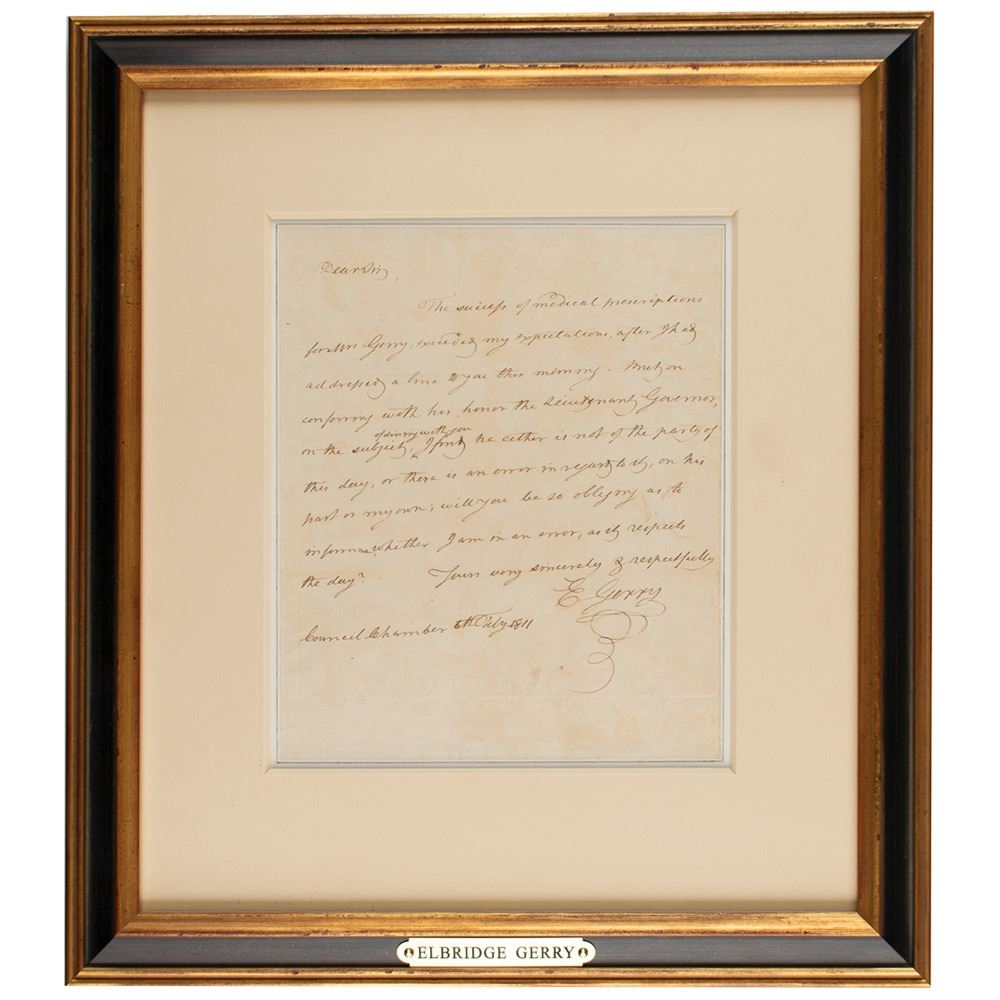 Dear Sir,
The success of medical prescriptions
for Mrs Gerry, exceeded my expectations, after I had
addressed a line to you this morning. But on
conferring with his honor the Lieutenant Governor,
of dining with you
on the subject, I find he either is not of the party of
this day, or there is an error in regard to it, on his
part or my own; will you be so obliging as to
inform me, whether I am in an error, as it respects
the day?
Yours very sincerely & respectfully
E Gerry
Council Chamber 6th Feby 1811
ELBRIDGE GERRY